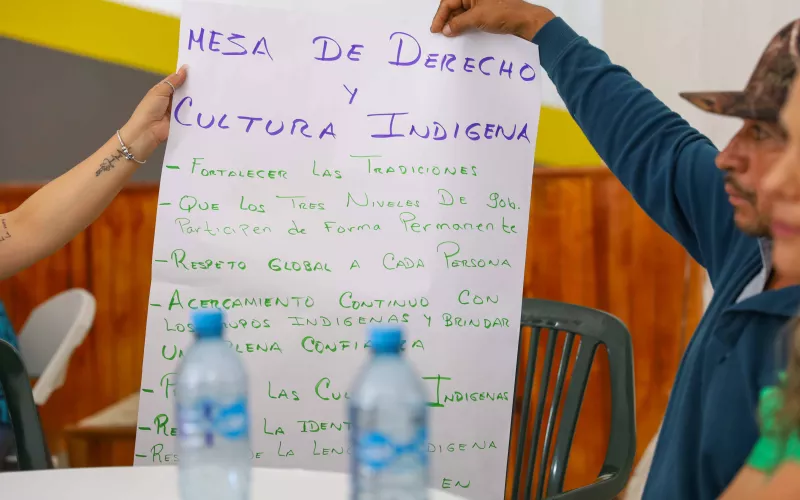 MESA DE DERECHO
Y
CULTURA INDIGENA
- FORTALECER LAS TRADICIONES
- QUE LOS TRES NIVELES DE gob.
Participen de Forma Permanente
- RESPETO GLOBAL A CADA PERSONA
- ACERCAMIENTO CONTINUO CON
LOS GRUPOS INDIGENAS Y BRINDAR
PLENA CONFIANZA
- LAS INDIGENAS
- LA
- DE LA INDIGENA
EN